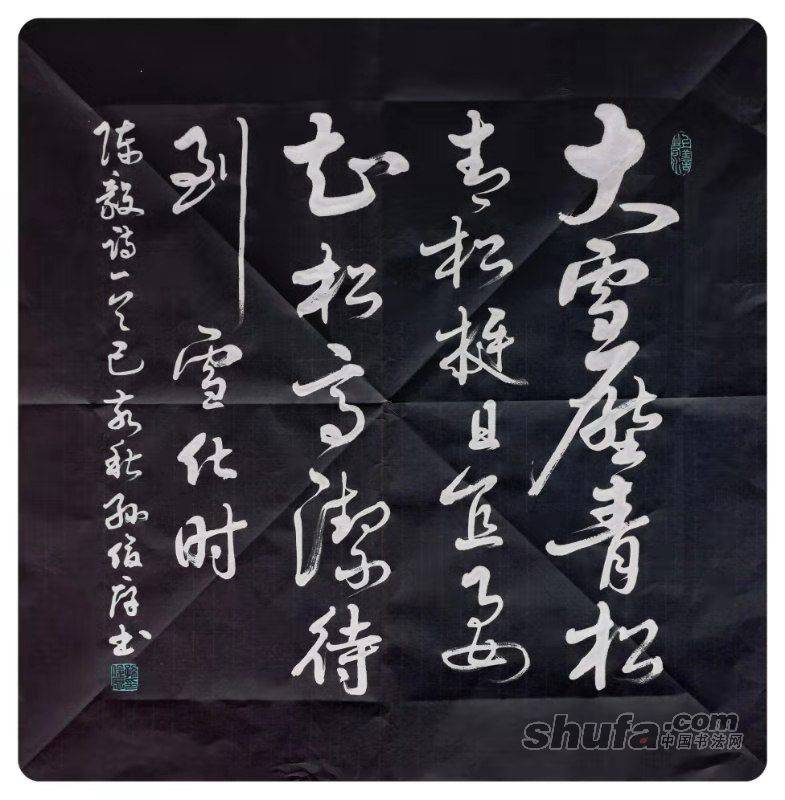 大雪壓青松
青松挺且直要
知松高潔待
到雪化时
陈毅诗一首己亥秋孙俊书
shufa.com
中国书法网